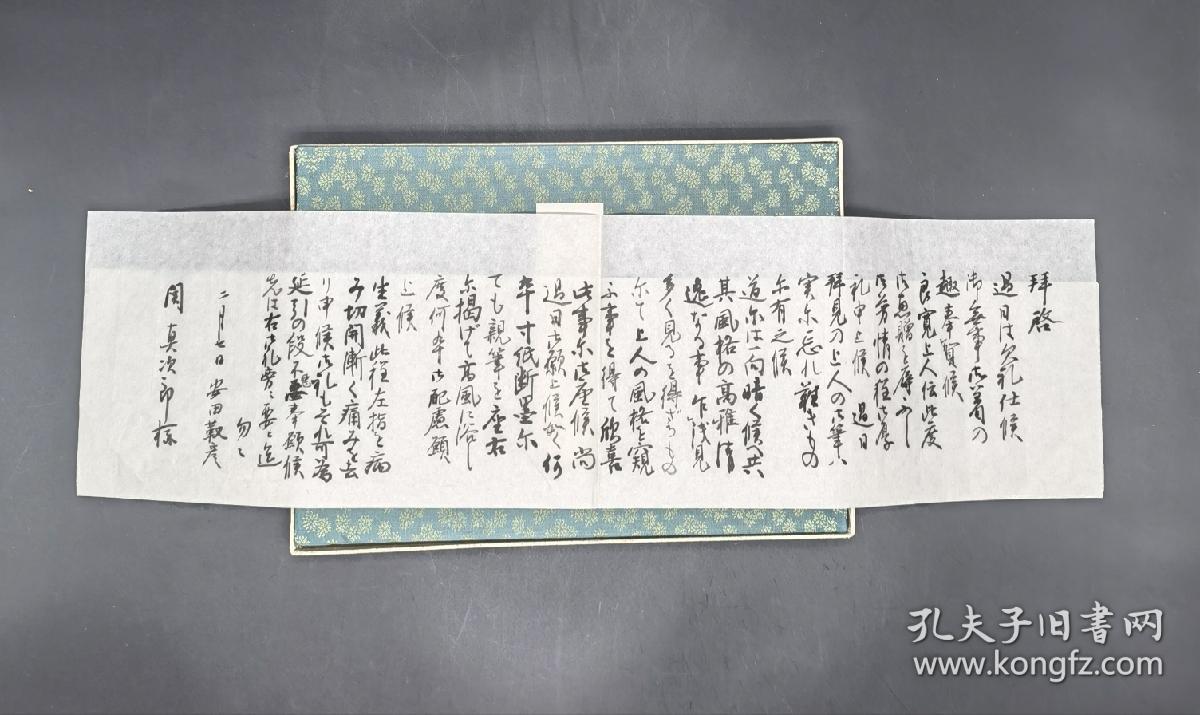 拝啓
過日は欠礼仕候
御無事御着の
趣奉賀候
良寛上人伝此度
御恵贈を辱ふし
御芳情の程御厚
礼申上候　過日
拝見の上人の御筆ハ
実尓忘れ難きもの
尓有之候
道尓は一向暗く候へ共
其風格の高雅清
逸なる事乍浅見
多く見るを得ざるもの
尓て上人の風格を窺
ふ事を得て欣喜
此事尓御座候　尚
過日御願上候如く何
卒寸紙断墨尓
ても親筆を座右
尓掲げて高風に浴し
度何卒御配慮願
上候
生義此程左指を病
み切開漸く痛みを去
り申候御礼もそれ為
延引の段不悪奉願候
先は右御礼旁々要々迄
匆々
二月七日　安田靫彦
周真次郎様
孔夫子旧書网
www.kongfz.com